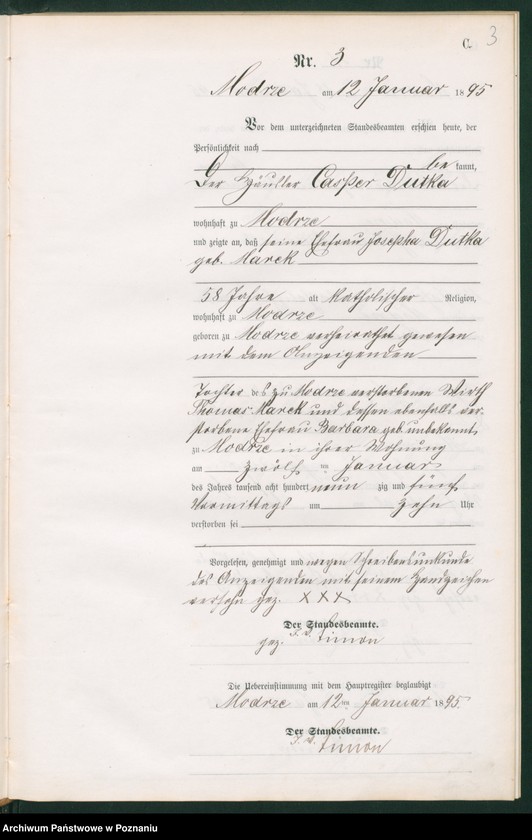 C.
3
Nr. 3
Modrze am 12 Januar 1895
Vor dem unterzeichneten Standesbeamten erschien heute, der
Persönlichkeit nach
be kannt,
Der Häusler Casper Dutka
wohnhaft zu Modrze
und zeigte an, daß seine Ehefrau Josepha Dutka
geb. Marek
58 Jahre alt katholischer Religion,
wohnhaft zu Modrze
geboren zu Modrze verheirathet gewesen
mit dem Anzeigenden
Tochter des zu Modrze verstorbenen Wirth
Thomas Marek und dessen ebenfalls ver-
storbene Ehefrau Barbara geb. unbekannt
zu Modrze in ihrer Wohnung
am zwölf ten Januar
des Jahres tausend acht hundert neun zig und fünf
Vormittags um zehn Uhr
verstorben sei
Vorgelesen, genehmigt und wegen Schreibensunkunde
des Anzeigenden mit seinem Handzeichen
versehn gez. XXX
Der Standesbeamte.
gez. Simon
Die Uebereinstimmung mit dem Hauptregister beglaubigt
Modrze am 12ten Januar 1895
Der Standesbeamte.
Simon
Archiwum Państwowe w Poznaniu